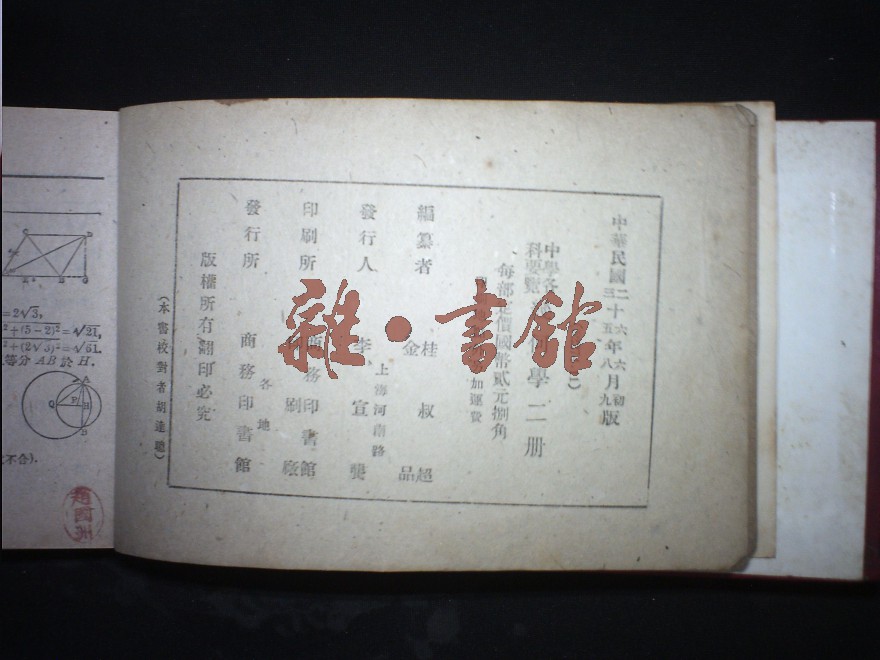 中華民國二十六年六月初
三十五年八月九版
中學各科要覽
學二冊
每部定價國幣貳元捌角
加運費
編纂者 桂叔超
金品
發行人 李宣龔
上海河南路
印刷所 商務印書館
印刷廠
發行所 各地
商務印書館
版權所有翻印必究
(本書校對者胡達聰)
雜·書館
=2√3,
²+(5-2)²=√21,
²+(2√3)²=√31.
等分 AB 於 H.
(不合).
趙國洲